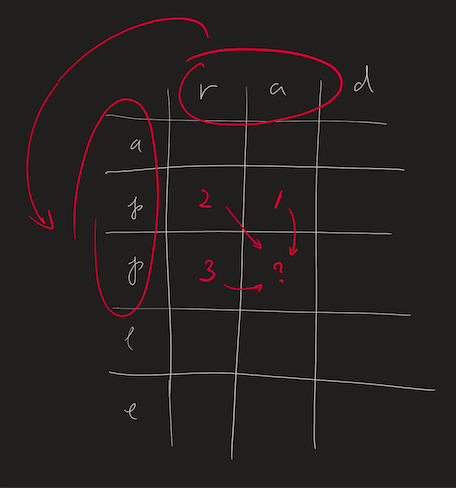 r a d
a
p 2 1
p 3 ?
l
e